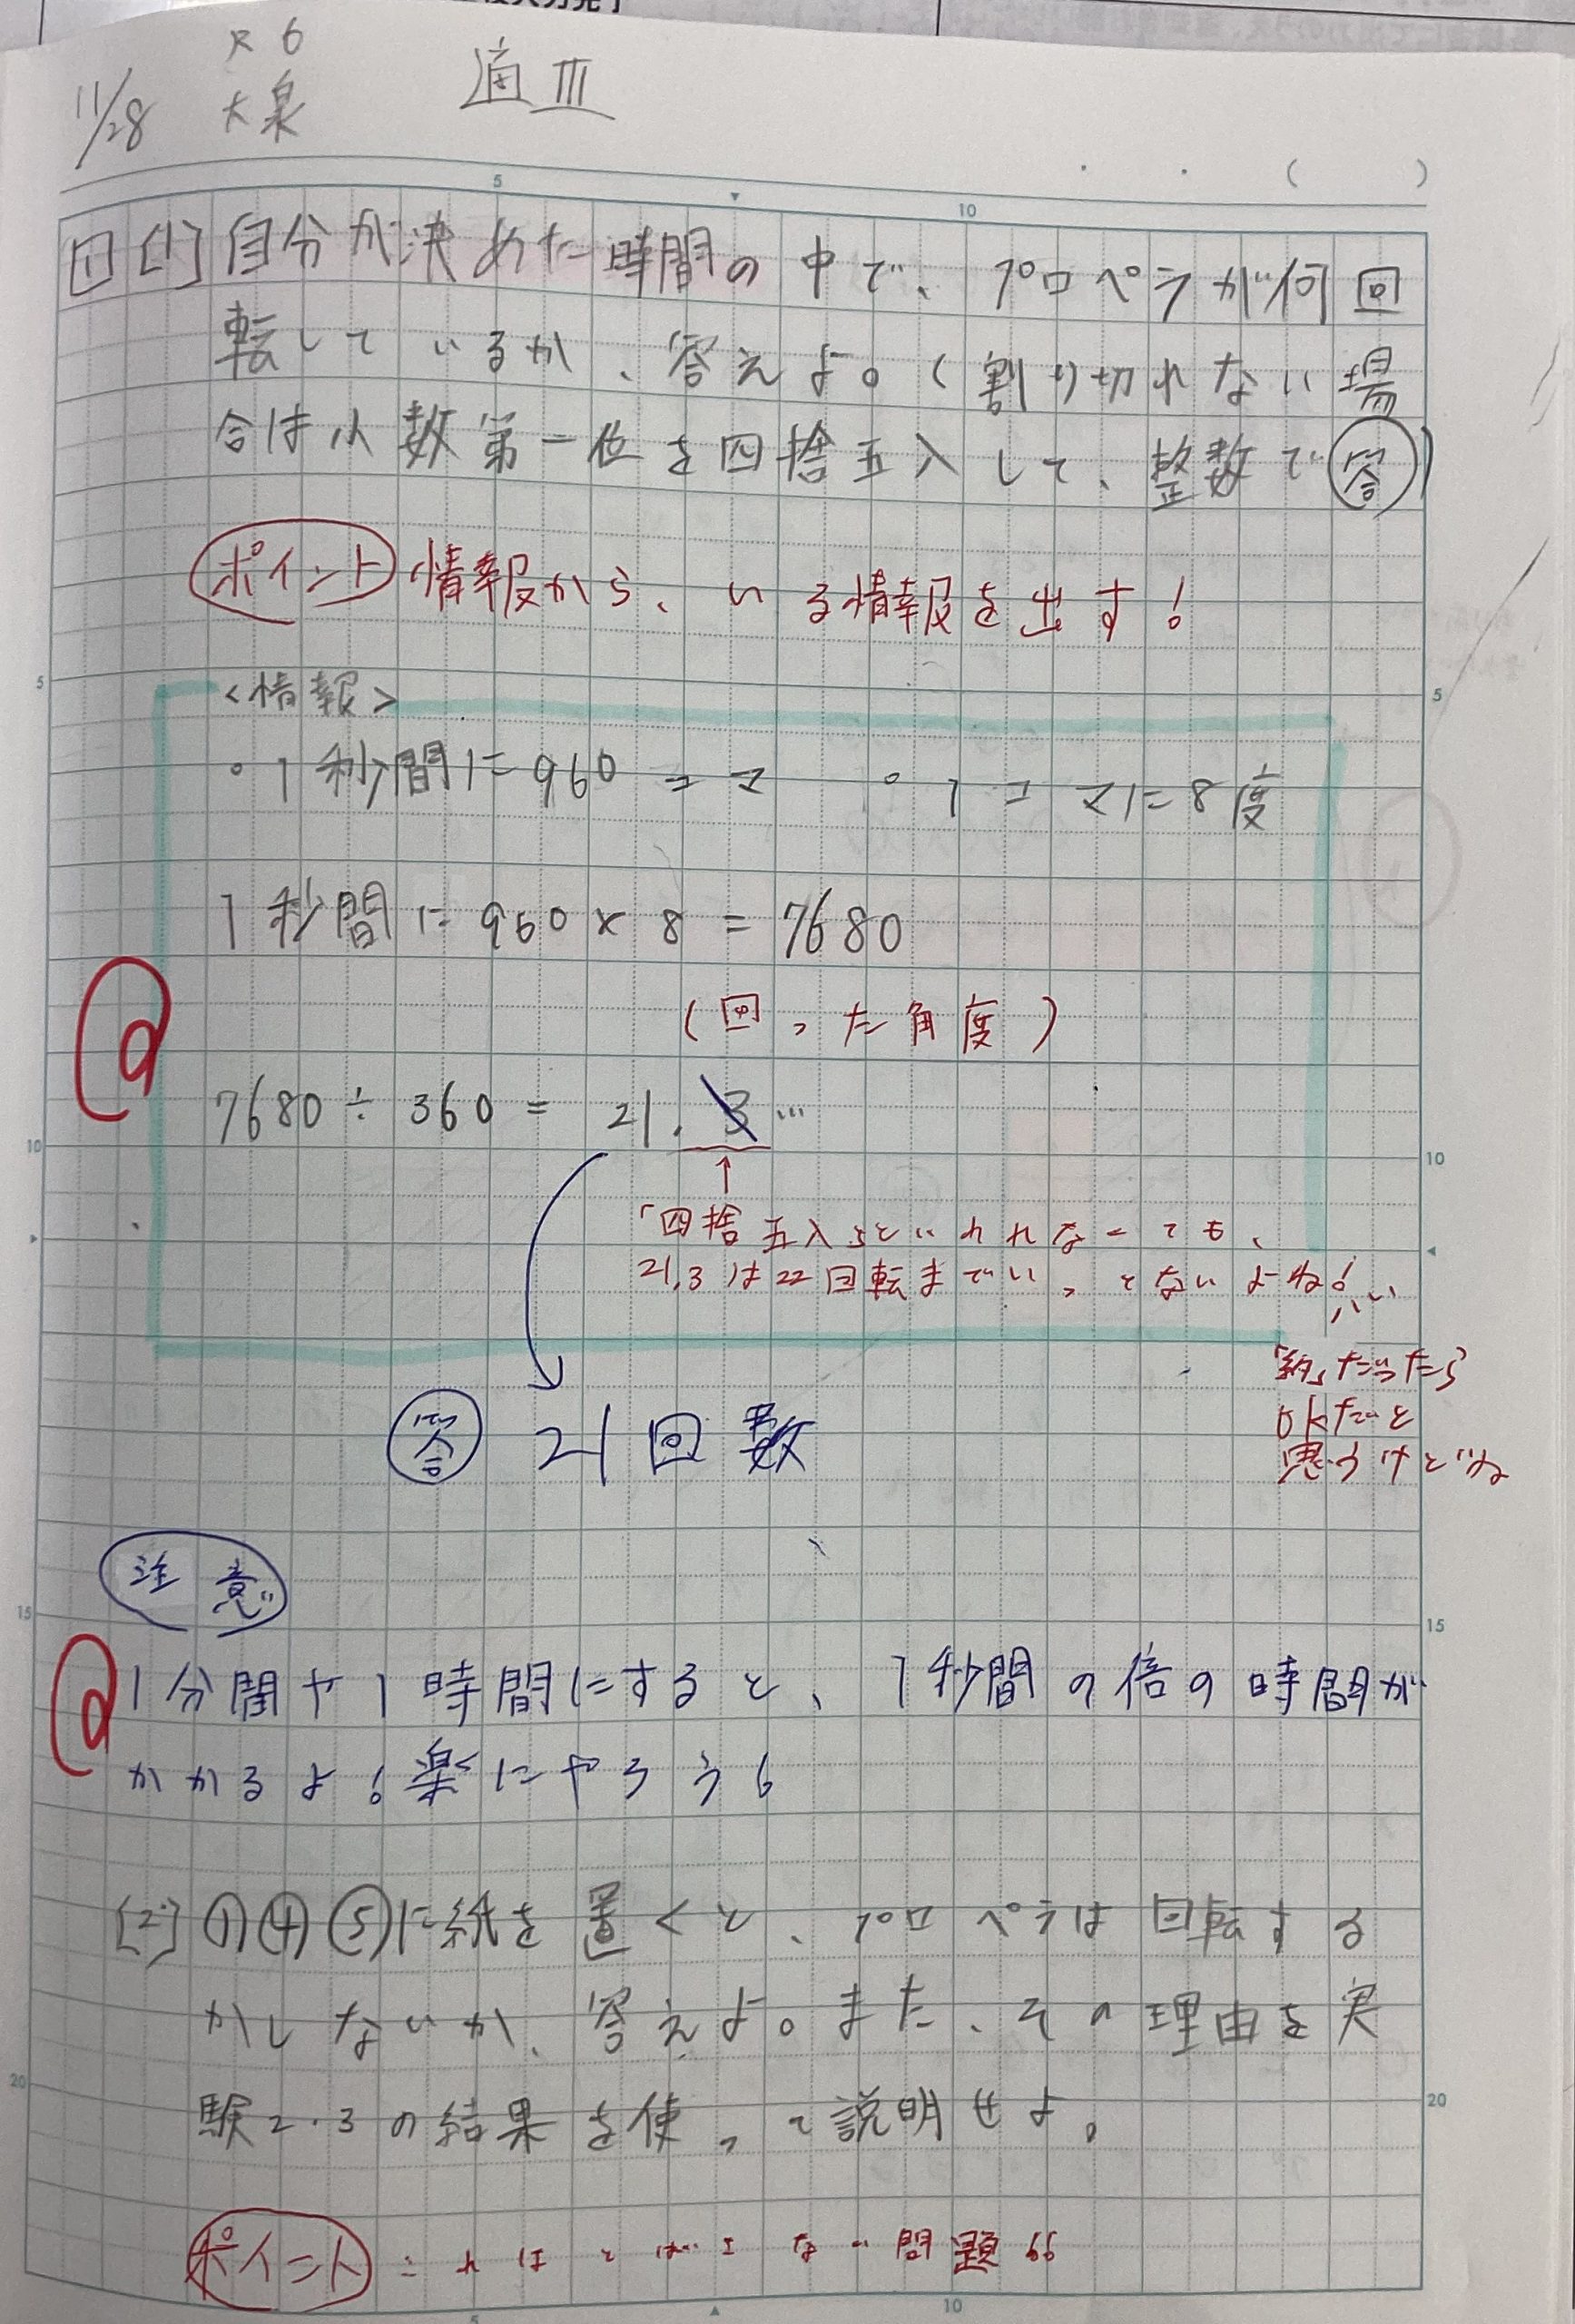 11/28
R6
大泉
適Ⅲ
( )
5 10
1 [1] 自分が決めた時間の中で、プロペラが何回
転しているか、答えよ。(割り切れない場
合は小数第一位を四捨五入して、整数で答)
ポイント 情報から、いる情報を出す!
5 5
<情報>
・1秒間に960コマ ・1コマに8度
1秒間に960×8=7680
(回った角度)
7680÷360=21.3…
10 10
↑
「四捨五入」といわれなくても、
21.3は22回転までいってないよね!
「約」だったら
okだと
思うけどね
答 21回数
注意
15 15
1分間や1時間にすると、1秒間の倍の時間が
かかるよ!楽にやろう!
[2] ①④⑤に紙を置くと、プロペラは回転する
かしないか、答えよ。また、その理由を実
20 20
験2・3の結果を使って説明せよ。
ポイント これはとばさない問題!!
5 10